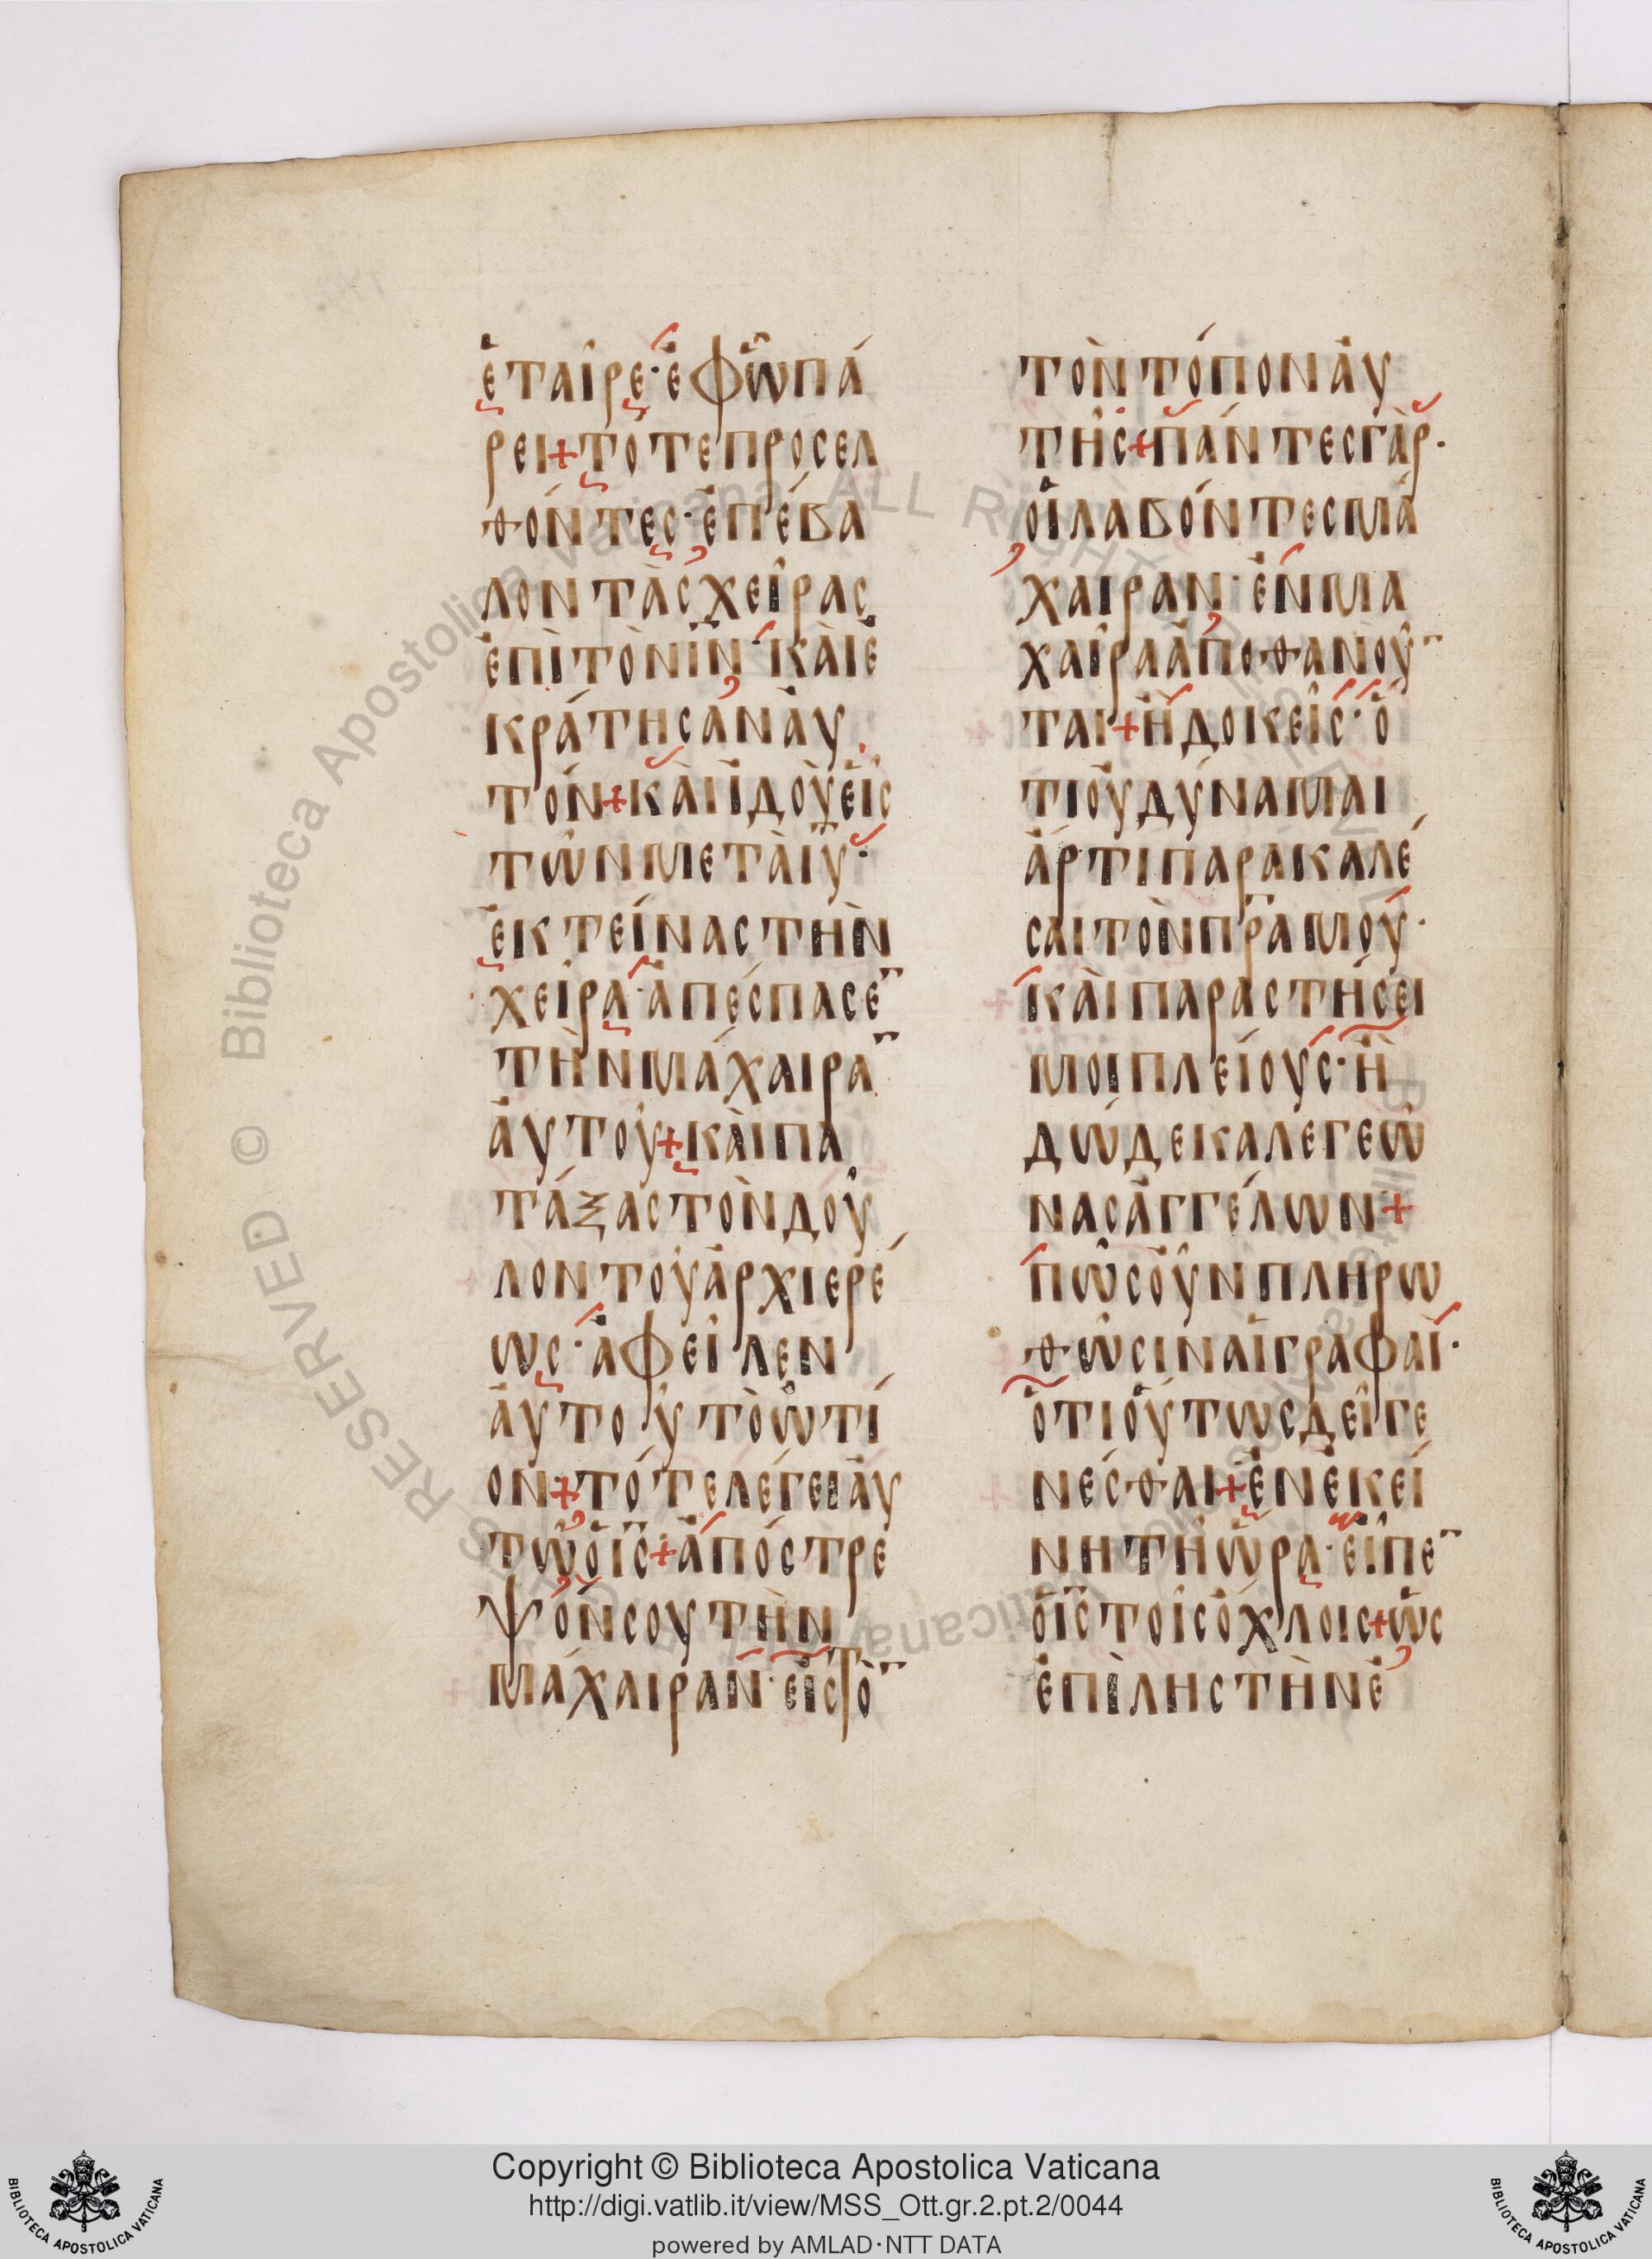 ἑταῖρε· ἐφ ᾧ πά
ρει + τότε προσελ
θόντες· ἐπέβα
λον τὰς χεῖρας
ἐπὶ τὸν ιν· καὶ ἐ
κράτησαν αὐ
τόν + καὶ ἰδοὺ εἷς
τῶν μετὰ ιυ·
ἐκτείνας τὴν
χεῖρα· ἀπέσπασε¯
τὴν μάχαιρα¯
αὐτοῦ + καὶ πα
τάξας τὸν δοῦ
λον τοῦ ἀρχιερέ
ως· ἀφεῖλεν
αὐτοῦ τὸ ὠτί
ον + τότε λέγει αὐ
τῷ ὁ ις + ἀπόστρε
ψόν σου τὴν
μάχαιραν· εἰς τὸ¯
τὸν τόπον αὐ
τῆς + πάντες γὰρ·
οἱ λαβόντες μά
χαιραν· ἐν μα
χαίρα ἀποθανοῦ¯
ται + ἢ δοκεῖς· ὅ
τι οὐ δύναμαι
ἄρτι παρακαλέ
σαι τὸν πρα μου·
καὶ παραστήσει
μοι πλείους· ἢ
δώδεκα λεγεῶ
νας ἀγγέλων +
πῶς οὖν πληρω
θῶσιν αἱ γραφαί·
ὅτι οὕτως δεῖ γε
νέσθαι + ἐν ἐκεί
νη τῆ ὥρα· εἶπε¯
ὁ ις τοῖς ὄχλοις + ὡς
ἐπὶ λῃστὴν ἐ
Copyright © Biblioteca Apostolica Vaticana
http://digi.vatlib.it/view/MSS_Ott.gr.2.pt.2/0044
powered by AMLAD·NTT DATA
BIBLIOTECA APOSTOLICA VATICANA
BIBLIOTECA APOSTOLICA VATICANA